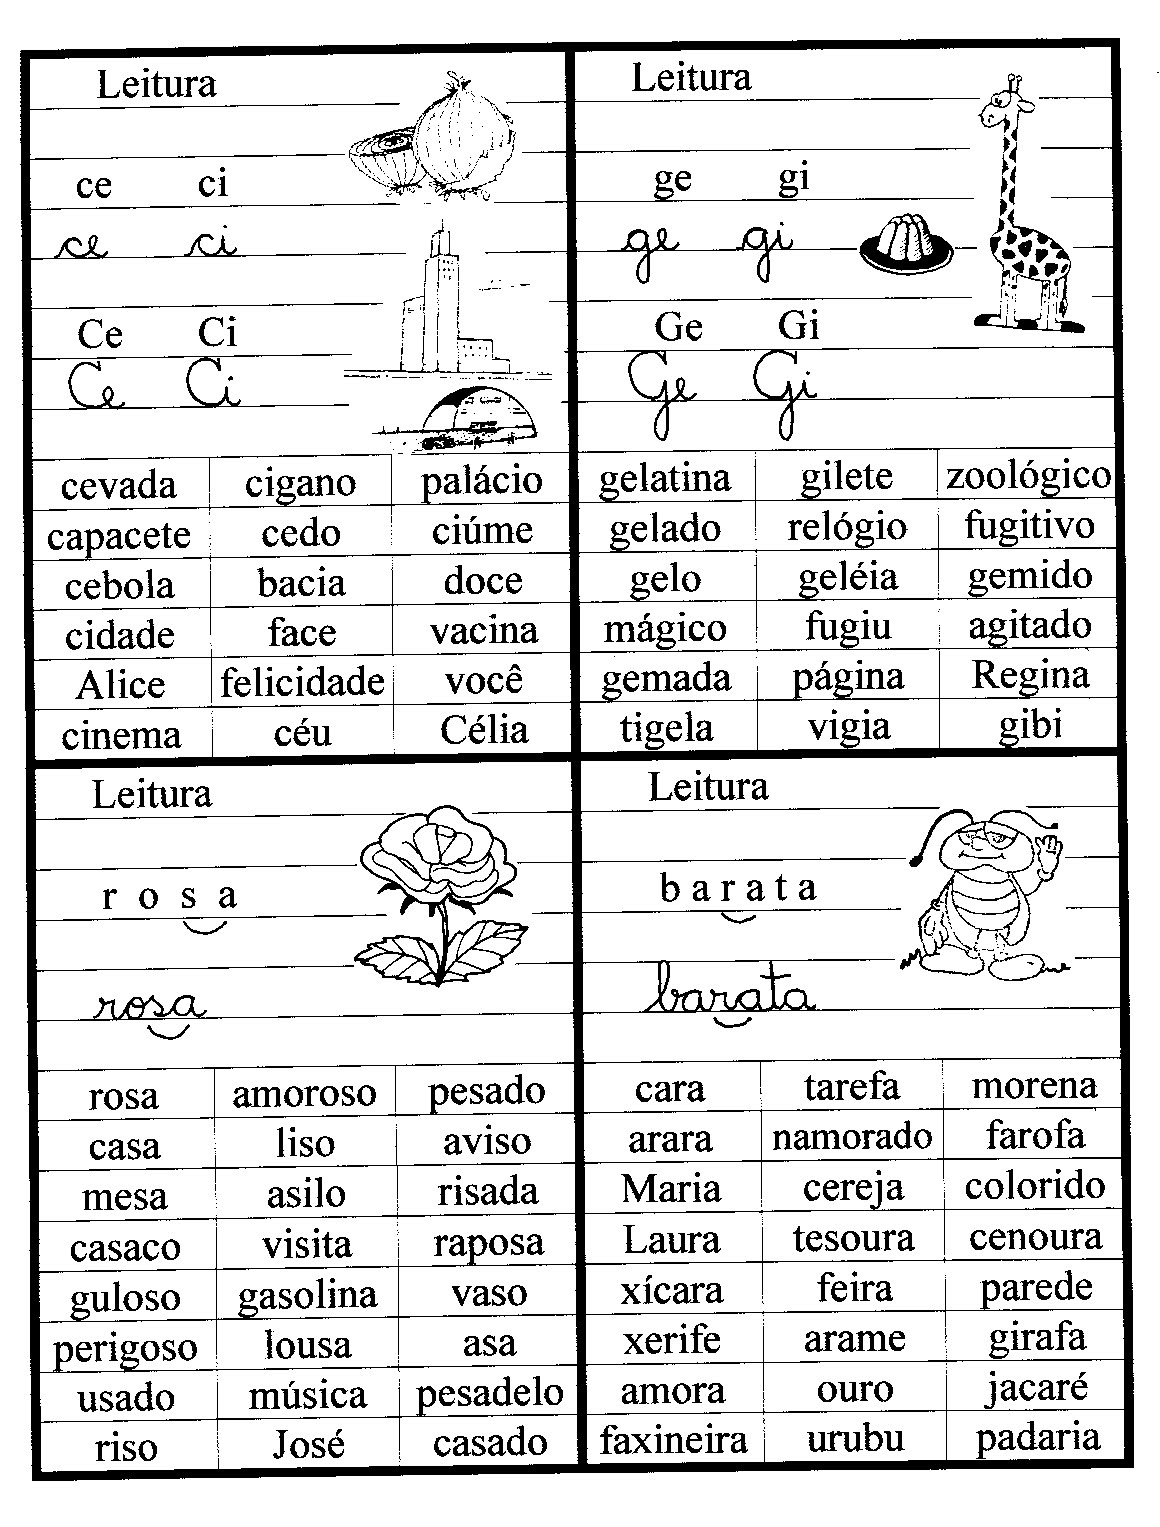 Leitura
ce ci
ce ci
Ce Ci
Ce Ci
cevada cigano palácio
capacete cedo ciúme
cebola bacia doce
cidade face vacina
Alice felicidade você
cinema céu Célia
Leitura
ge gi
ge gi
Ge Gi
Ge Gi
gelatina gilete zoológico
gelado relógio fugitivo
gelo geléia gemido
mágico fugiu agitado
gemada página Regina
tigela vigia gibi
Leitura
r o s a
rosa
rosa amoroso pesado
casa liso aviso
mesa asilo risada
casaco visita raposa
guloso gasolina vaso
perigoso lousa asa
usado música pesadelo
riso José casado
Leitura
b a r a t a
barata
cara tarefa morena
arara namorado farofa
Maria cereja colorido
Laura tesoura cenoura
xícara feira parede
xerife arame girafa
amora ouro jacaré
faxineira urubu padaria